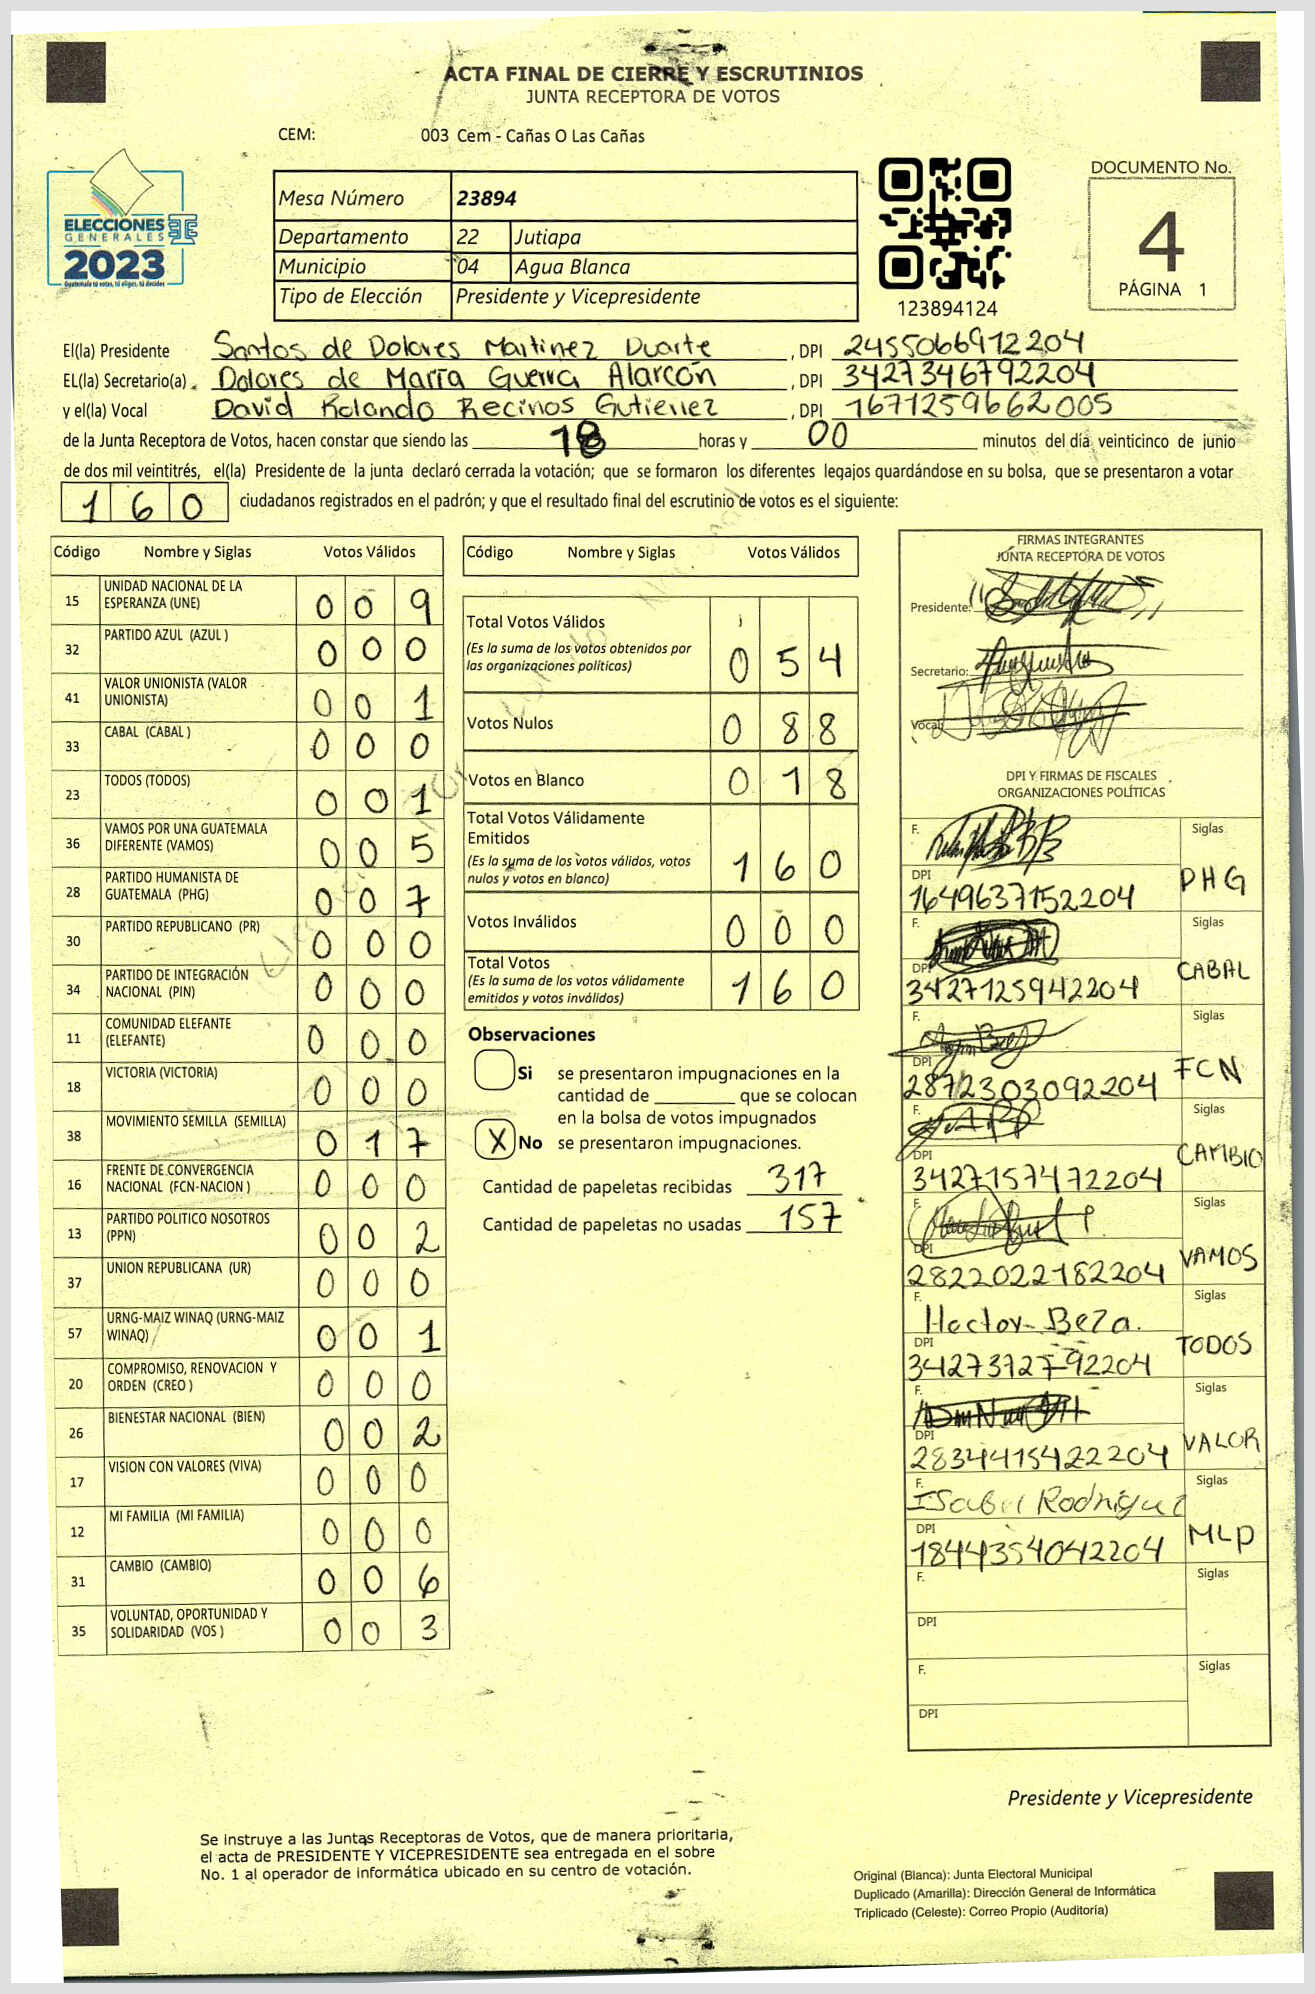 ACTA FINAL DE CIERRE Y ESCRUTINIOS
JUNTA RECEPTORA DE VOTOS
CEM: 003 Cem - Cañas O Las Cañas
ELECCIONES
GENERALES
2023
Guatemala tú votas, tú eliges, tú decides
Mesa Número 23894
Departamento 22 Jutiapa
Municipio 04 Agua Blanca
Tipo de Elección Presidente y Vicepresidente
123894124
DOCUMENTO No.
4
PÁGINA 1
El(la) Presidente Santos de Dolores Martinez Duarte , DPI 2455066912204
EL(la) Secretario(a) Dolores de María Guerra Alarcón , DPI 3427346792204
y el(la) Vocal David Rolando Recinos Gutierrez , DPI 1671259662005
de la Junta Receptora de Votos, hacen constar que siendo las 18 horas y 00 minutos del día veinticinco de junio
de dos mil veintitrés, el(la) Presidente de la junta declaró cerrada la votación; que se formaron los diferentes legajos guardándose en su bolsa, que se presentaron a votar
160 ciudadanos registrados en el padrón; y que el resultado final del escrutinio de votos es el siguiente:
Código Nombre y Siglas Votos Válidos
15 UNIDAD NACIONAL DE LA ESPERANZA (UNE) 0 0 9
32 PARTIDO AZUL (AZUL ) 0 0 0
41 VALOR UNIONISTA (VALOR UNIONISTA) 0 0 1
33 CABAL (CABAL ) 0 0 0
23 TODOS (TODOS) 0 0 1
36 VAMOS POR UNA GUATEMALA DIFERENTE (VAMOS) 0 0 5
28 PARTIDO HUMANISTA DE GUATEMALA (PHG) 0 0 7
30 PARTIDO REPUBLICANO (PR) 0 0 0
34 PARTIDO DE INTEGRACIÓN NACIONAL (PIN) 0 0 0
11 COMUNIDAD ELEFANTE (ELEFANTE) 0 0 0
18 VICTORIA (VICTORIA) 0 0 0
38 MOVIMIENTO SEMILLA (SEMILLA) 0 1 7
16 FRENTE DE CONVERGENCIA NACIONAL (FCN-NACION ) 0 0 0
13 PARTIDO POLITICO NOSOTROS (PPN) 0 0 2
37 UNION REPUBLICANA (UR) 0 0 0
57 URNG-MAIZ WINAQ (URNG-MAIZ WINAQ) 0 0 1
20 COMPROMISO, RENOVACION Y ORDEN (CREO ) 0 0 0
26 BIENESTAR NACIONAL (BIEN) 0 0 2
17 VISION CON VALORES (VIVA) 0 0 0
12 MI FAMILIA (MI FAMILIA) 0 0 0
31 CAMBIO (CAMBIO) 0 0 6
35 VOLUNTAD, OPORTUNIDAD Y SOLIDARIDAD (VOS ) 0 0 3
Código Nombre y Siglas Votos Válidos
Total Votos Válidos
(Es la suma de los votos obtenidos por
las organizaciones políticas)
0 5 4
Votos Nulos 0 8 8
Votos en Blanco 0 1 8
Total Votos Válidamente
Emitidos
(Es la suma de los votos válidos, votos
nulos y votos en blanco)
1 6 0
Votos Inválidos 0 0 0
Total Votos
(Es la suma de los votos válidamente
emitidos y votos inválidos)
1 6 0
Observaciones
Si se presentaron impugnaciones en la
cantidad de ________ que se colocan
en la bolsa de votos impugnados
X No se presentaron impugnaciones.
Cantidad de papeletas recibidas 317
Cantidad de papeletas no usadas 157
FIRMAS INTEGRANTES
JUNTA RECEPTORA DE VOTOS
Presidente:
Secretario:
Vocal:
DPI Y FIRMAS DE FISCALES
ORGANIZACIONES POLÍTICAS
F. Siglas
DPI 1649637152204 PHG
F. Siglas
DPI 3427125942204 CABAL
F. Siglas
DPI 2872303092204 FCN
F. Siglas
DPI 3427157472204 CAMBIO
F. Siglas
DPI 2822022182204 VAMOS
F. Hector Beza. Siglas
DPI 3427372792204 TODOS
F. Siglas
DPI 2834415422204 VALOR
F. Isabel Rodriguez Siglas
DPI 1844354042204 MLP
F. Siglas
DPI
F. Siglas
DPI
Presidente y Vicepresidente
Se instruye a las Juntas Receptoras de Votos, que de manera prioritaria,
el acta de PRESIDENTE Y VICEPRESIDENTE sea entregada en el sobre
No. 1 al operador de informática ubicado en su centro de votación.
Original (Blanca): Junta Electoral Municipal
Duplicado (Amarilla): Dirección General de Informática
Triplicado (Celeste): Correo Propio (Auditoría)